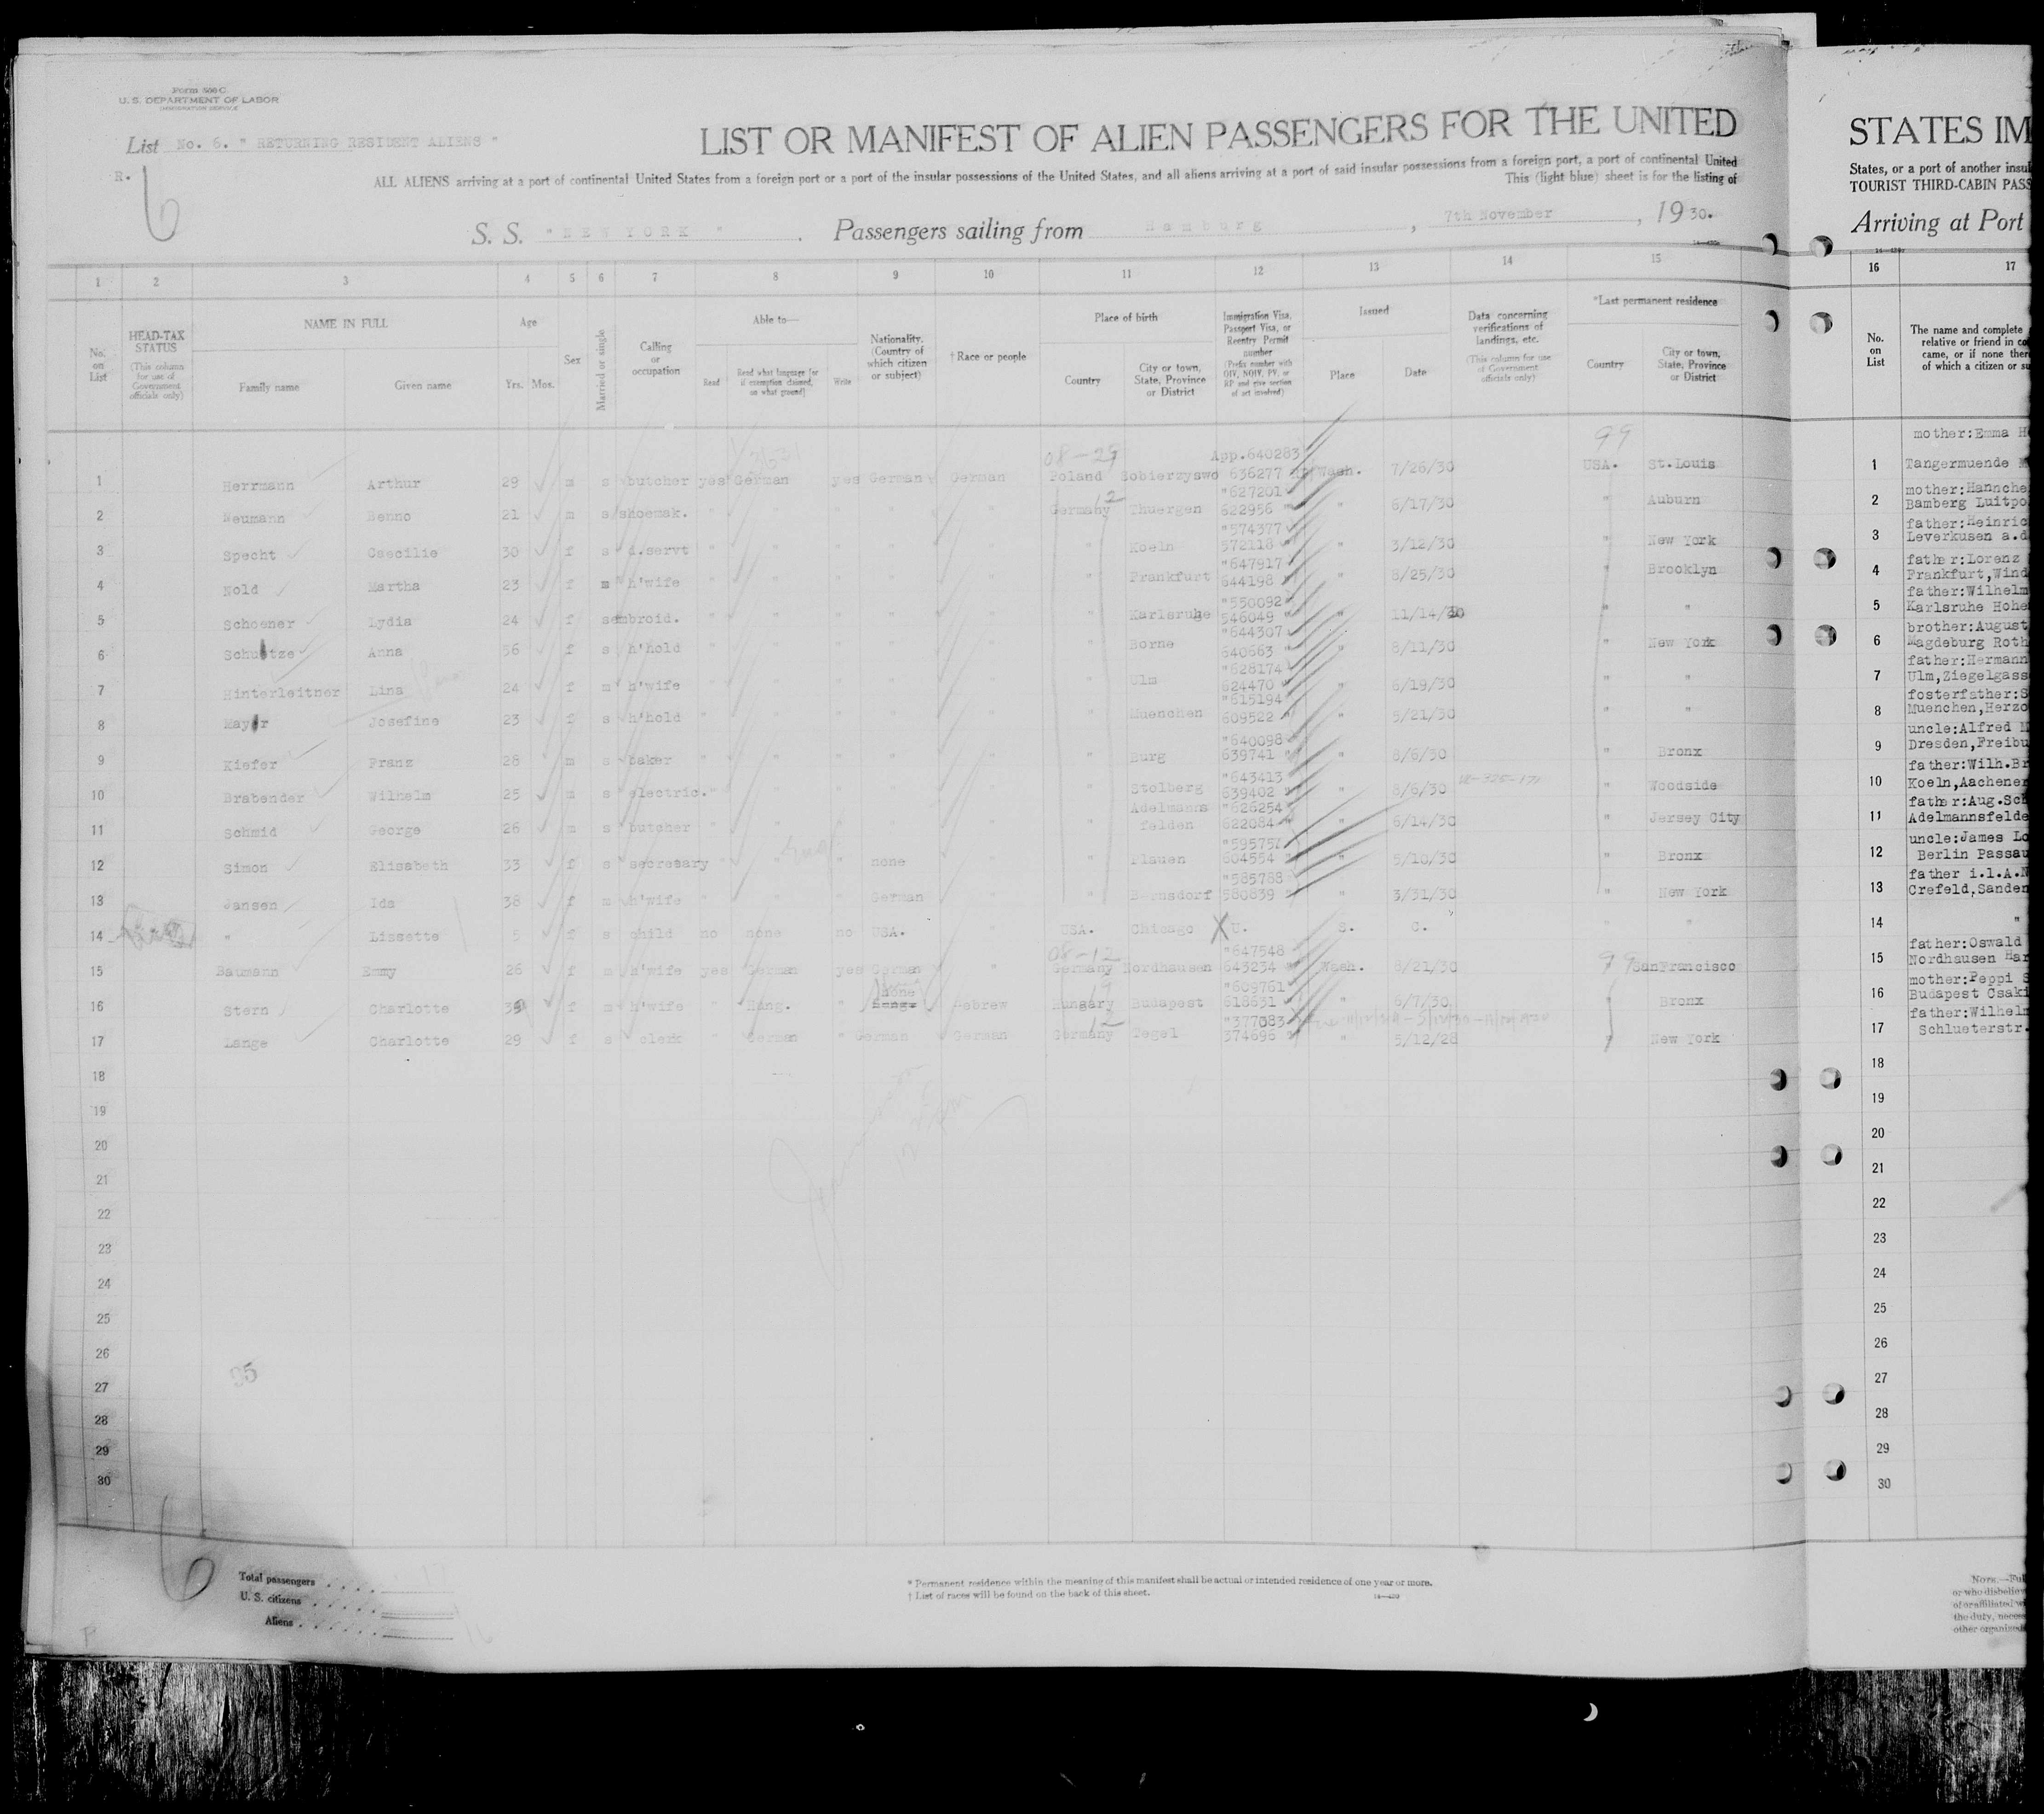 Form 500 C
U. S. DEPARTMENT OF LABOR
IMMIGRATION SERVICE
List No. 6. " RETURNING RESIDENT ALIENS "
R.
6
LIST OR MANIFEST OF ALIEN PASSENGERS FOR THE UNITED
ALL ALIENS arriving at a port of continental United States from a foreign port or a port of the insular possessions of the United States, and all aliens arriving at a port of said insular possessions from a foreign port, a port of continental United
This (light blue) sheet is for the listing of
S. S. " NEW YORK " . Passengers sailing from Hamburg , 7th November , 1930.
1 2 3 4 5 6 7 8 9 10 11 12 13 14 15
No. on List
HEAD-TAX STATUS
(This column for use of Government officials only)
NAME IN FULL
Family name Given name
Age
Yrs. Mos.
Sex
Married or single
Calling or occupation
Able to—
Read Read what language [or if exemption claimed, on what ground] Write
Nationality. (Country of which citizen or subject)
† Race or people
Place of birth
Country City or town, State, Province or District
Immigration Visa, Passport Visa, or Reentry Permit number
(Prefix number with QIV, NQIV, PV, or RP and give section of act involved)
Issued
Place Date
Data concerning verifications of landings, etc.
(This column for use of Government officials only)
*Last permanent residence
Country City or town, State, Province or District
08-29 App.640283 99
1 Herrmann Arthur 29 m s butcher yes German yes German German Poland Sobierzyswo 636277 Wash. 7/26/30 USA. St.Louis
12 "627201
2 Neumann Benno 21 m s shoemak. " " " " " Germany Thuergen 622956 " " 6/17/30 " Auburn
"574377
3 Specht Caecilie 30 f s d.servt " " " " " " Koeln 572118 " " 3/12/30 " New York
"647917
4 Nold Martha 23 f m h'wife " " " " " " Frankfurt 644198 " 8/25/30 " Brooklyn
"550092
5 Schoener Lydia 24 f s embroid. " " " " " " Karlsruhe 546049 " " 11/14/ " "
"644307
6 Schuetze Anna 56 f s h'hold " " " " " " Borne 640663 " " 8/11/30 " New York
"628174
7 Hinterleitner Lina 24 f m h'wife " " " " " " Ulm 624470 " " 6/19/30 " "
"615194
8 Mayer Josefine 23 f s h'hold " " " " " " Muenchen 609522 " " 5/21/30 " "
"640098
9 Kiefer Franz 28 m s baker " " " " " " Burg 639741 " " 8/6/30 " Bronx
"643413
10 Brabender Wilhelm 25 m s electric. " " " " " " Stolberg 639402 " " 8/6/30 " Woodside
Adelmanns "626254
11 Schmid George 26 m s butcher " " " " " " felden 622084 " " 6/14/30 " Jersey City
"595757
12 Simon Elisabeth 33 f s secretary " " " none " " Plauen 604554 " " 5/10/30 " Bronx
"585788
13 Jansen Ida 38 f m h'wife " " " German " " Bernsdorf 580839 " " 3/31/30 " New York
14 " Lissette 5 f s child no none no USA. " USA. Chicago X U. S. C. " "
08-12 "647548
15 Baumann Emmy 26 f m h'wife yes German yes German " Germany Nordhausen 643234 " Wash. 8/21/30 99 SanFrancisco
none 19 "609761
16 Stern Charlotte 39 f m h'wife " Hung. " Hung. Hebrew Hungary Budapest 618631 " " 6/7/30 " Bronx
12 "377083
17 Lange Charlotte 29 f s clerk " German " German German Germany Tegel 374696 " " 5/12/28 " New York
18
19
20
21
22
23
24
25
26
27
28
29
30
95
6
Total passengers . . . . 17
U. S. citizens . . . . .
Aliens . . . . . . 16
* Permanent residence within the meaning of this manifest shall be actual or intended residence of one year or more.
† List of races will be found on the back of this sheet.
STATES IM
States, or a port of another insul
TOURIST THIRD-CABIN PASS
Arriving at Port
16 17
No. on List
The name and complete
relative or friend in co
came, or if none ther
of which a citizen or su
mother:Emma H
1 Tangermuende
mother:Hannche
2 Bamberg Luitpo
father:Heinric
3 Leverkusen a.d
father:Lorenz
4 Frankfurt,Wind
father:Wilhelm
5 Karlsruhe Hohe
brother:August
6 Magdeburg Roth
father:Hermann
7 Ulm,Ziegelgass
fosterfather:S
8 Muenchen,Herzo
uncle:Alfred M
9 Dresden,Freibu
father:Wilh.Br
10 Koeln,Aachener
father:Aug.Sch
11 Adelmannsfelde
uncle:James Lo
12 Berlin Passau
father i.l.A.N
13 Crefeld,Sanden
14 "
father:Oswald
15 Nordhausen Har
mother:Peppi S
16 Budapest Csaki
father:Wilhelm
17 Schlueterstr.
18
19
20
21
22
23
24
25
26
27
28
29
30
NOTE.—Ful
or who disbeliev
of or affiliated wi
the duty, neces
other organized